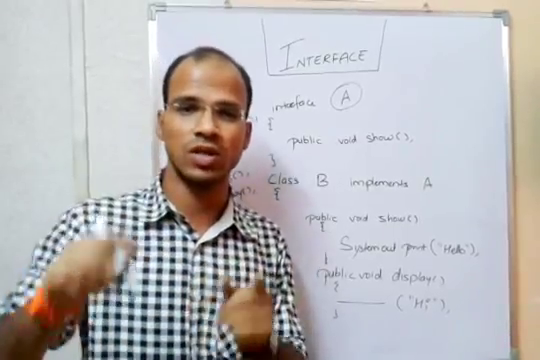 INTERFACE
interface A
{
public void show();
}
();
Class B implements A
{
public void show()
{
System.out.print("Hello");
}
public void display()
{
("Hi");
}